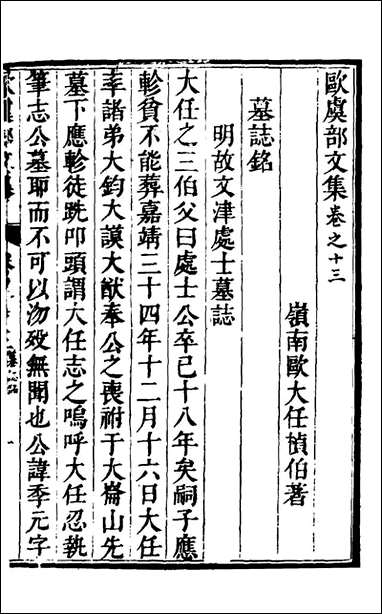 歐虞部文集卷之十三
嶺南歐大任楨伯著
墓誌銘
明故文津處士墓誌
大任之三伯父曰處士公卒已十八年矣嗣子應
軫貧不能葬嘉靖三十四年十二月十六日大任
率諸弟大鈞大謨大猷奉公之喪祔于大崙山先
墓下應軫徒跣叩頭謂大任志之嗚呼大任忍執
筆志公墓耶而不可以沕歿無聞也公諱季元字